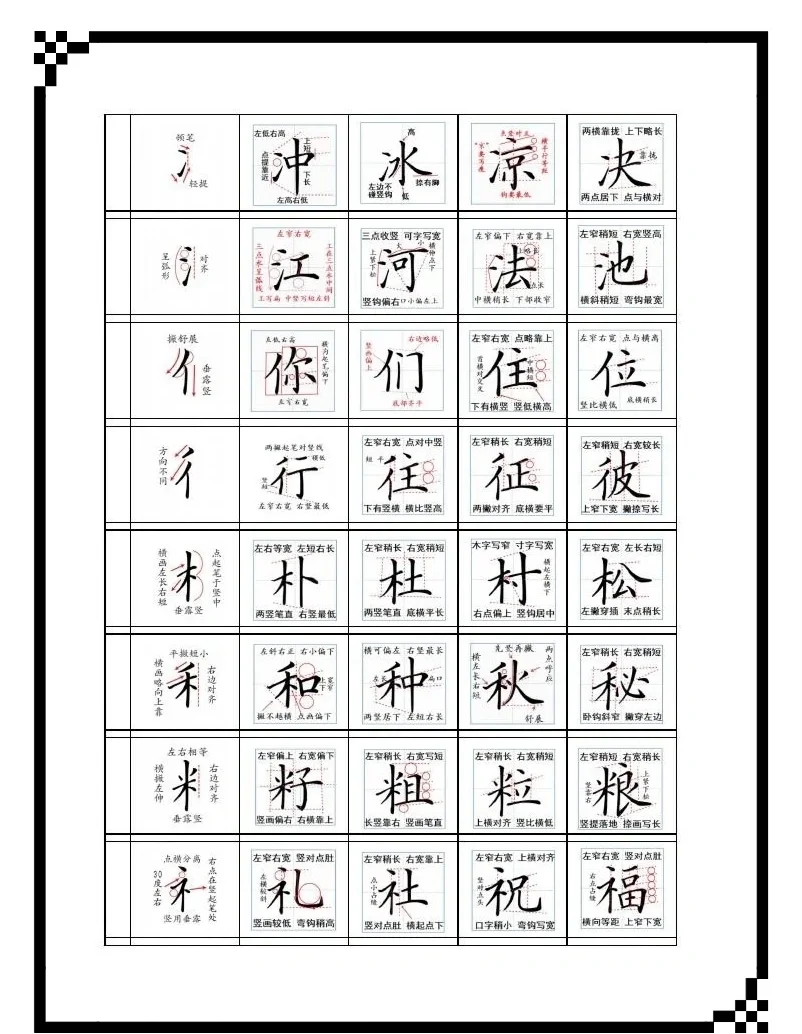 顿笔
轻提
左低右高
上短
点提靠近
下长
冲
左高右低
高
冰
左边不碰竖钩
捺有脚
低
点竖对正
横平行等距
凉
钩要最低
两横靠拢 上下略长
靠拢
决
两点居下 点与横对
呈弧形
对齐
左窄右宽
三点水呈弧线
工在三点水中间
江
工写扁 中竖写短左斜
三点收竖 可字写宽
大
小
上紧下松
横伸点下
河
竖钩偏右 口小偏左上
左窄偏下 右宽靠上
上略长
法
点长
中横稍长 下部收窄
左窄稍短 右宽竖高
池
横斜稍短 弯钩最宽
撇舒展
垂露竖
左低右高
横勾起笔偏下
你
左窄右宽
右边略低
竖画偏上
们
底部齐平
左窄右宽 点略靠上
首横对交叉
中横短
住
下有横竖 竖低横高
左窄右宽 点与横离
位
竖比横低
底横稍长
方向不同
两撇起笔对竖线
横低
竖短
行
左窄右宽 右竖最低
左窄右宽 点对中竖
短 平
往
下有竖横 横比竖高
左窄稍长 右宽稍短
征
两撇对齐 底横要平
左窄稍短 右宽较长
彼
上窄下宽 撇捺写长
横画左长右短
点起笔于竖中
垂露竖
左右等宽 左短右长
朴
两竖笔直 右竖最低
左窄稍长 右宽稍短
杜
两竖笔直 底横平长
木字写窄 寸字写宽
横起左横下
村
右点偏上 竖钩居中
左窄右宽 左长右短
松
左撇穿插 末点稍长
平撇短小
横画略向上靠
右边对齐
左斜右正 右小偏下
上宽下窄
和
撇不越横 点画偏下
横可偏左 右竖最长
左长
扁口
种
两竖居下 左短右长
先竖再撇
横左长右短
两点呼应
秋
舒展
左窄稍长 右宽稍短
秘
卧钩斜窄 撇穿左边
左右相等
横撇左伸
右边对齐
垂露竖
左窄偏上 右宽偏下
籽
竖画偏右 右横靠上
左窄稍长 右宽写短
粗
长竖靠右 竖画笔直
左窄稍长 右宽稍短
粒
上横对齐 竖比横低
左窄稍短 右宽稍长
竖靠右
上紧下松
粮
竖提落地 捺画写长
点横分离
30度左右
右点在竖起笔处
竖用垂露
左窄右宽 竖对点肚
左横较斜
礼
竖画较低 弯钩稍高
左窄稍长 右宽靠上
点小占缝
社
竖对点肚 横起点下
左窄右宽 上横对齐
竖对点头
祝
口字稍小 弯钩写宽
左窄右宽 竖对点肚
右点占缝
福
横向等距 上窄下宽